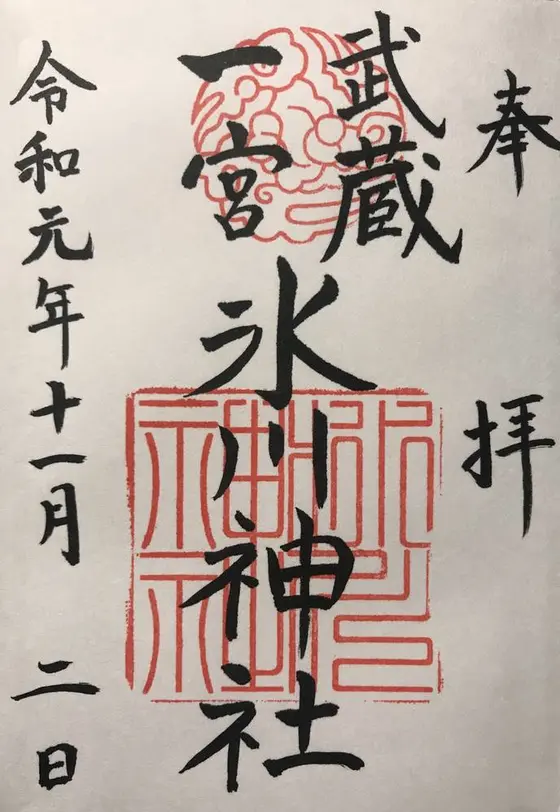 奉拝
武蔵
一宮
氷川神社
令和元年十一月二日